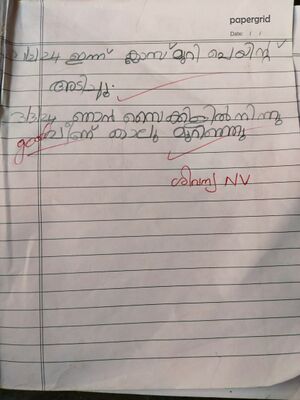 papergrid
Date: / /
2/2/24 ഇന്ന് ക്ലാസ് മുറി പെയിന്റ്
അടിച്ചു.
3/2/24 ഞാൻ സൈക്കിളിൽ നിന്നു
വീണ് കാലു മുറിഞ്ഞു
ശിവന്യ NV